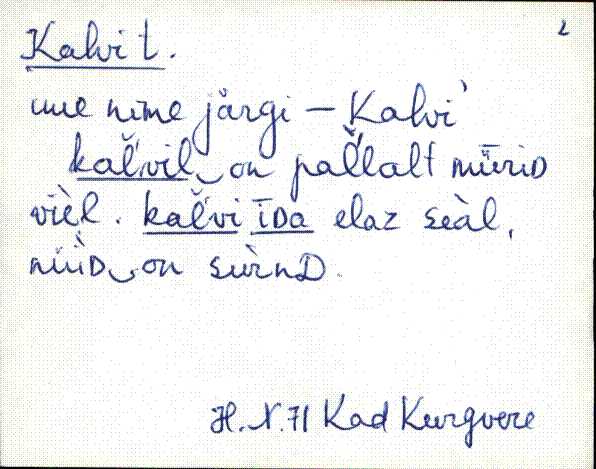 2
Kalvi t.
uue nime järgi – Kalvi
kal̆'vil‿on pal̆'lalt mūriD
vièl. kal̆'vi īDa elaz seàl,
nüùD‿on suùrnD.
H. X.71 Kad Kurgvere